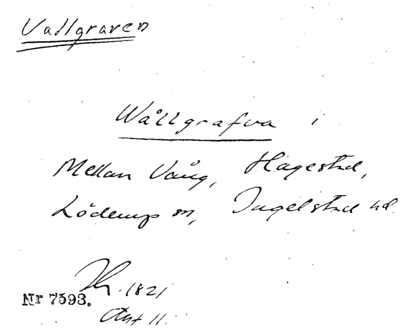 Vallgraven
Wållgrafva i
Mellan Vång, Hagestad,
Löderups sn, Ingelstad hd
1821
Nr 7593.
Akt 11.